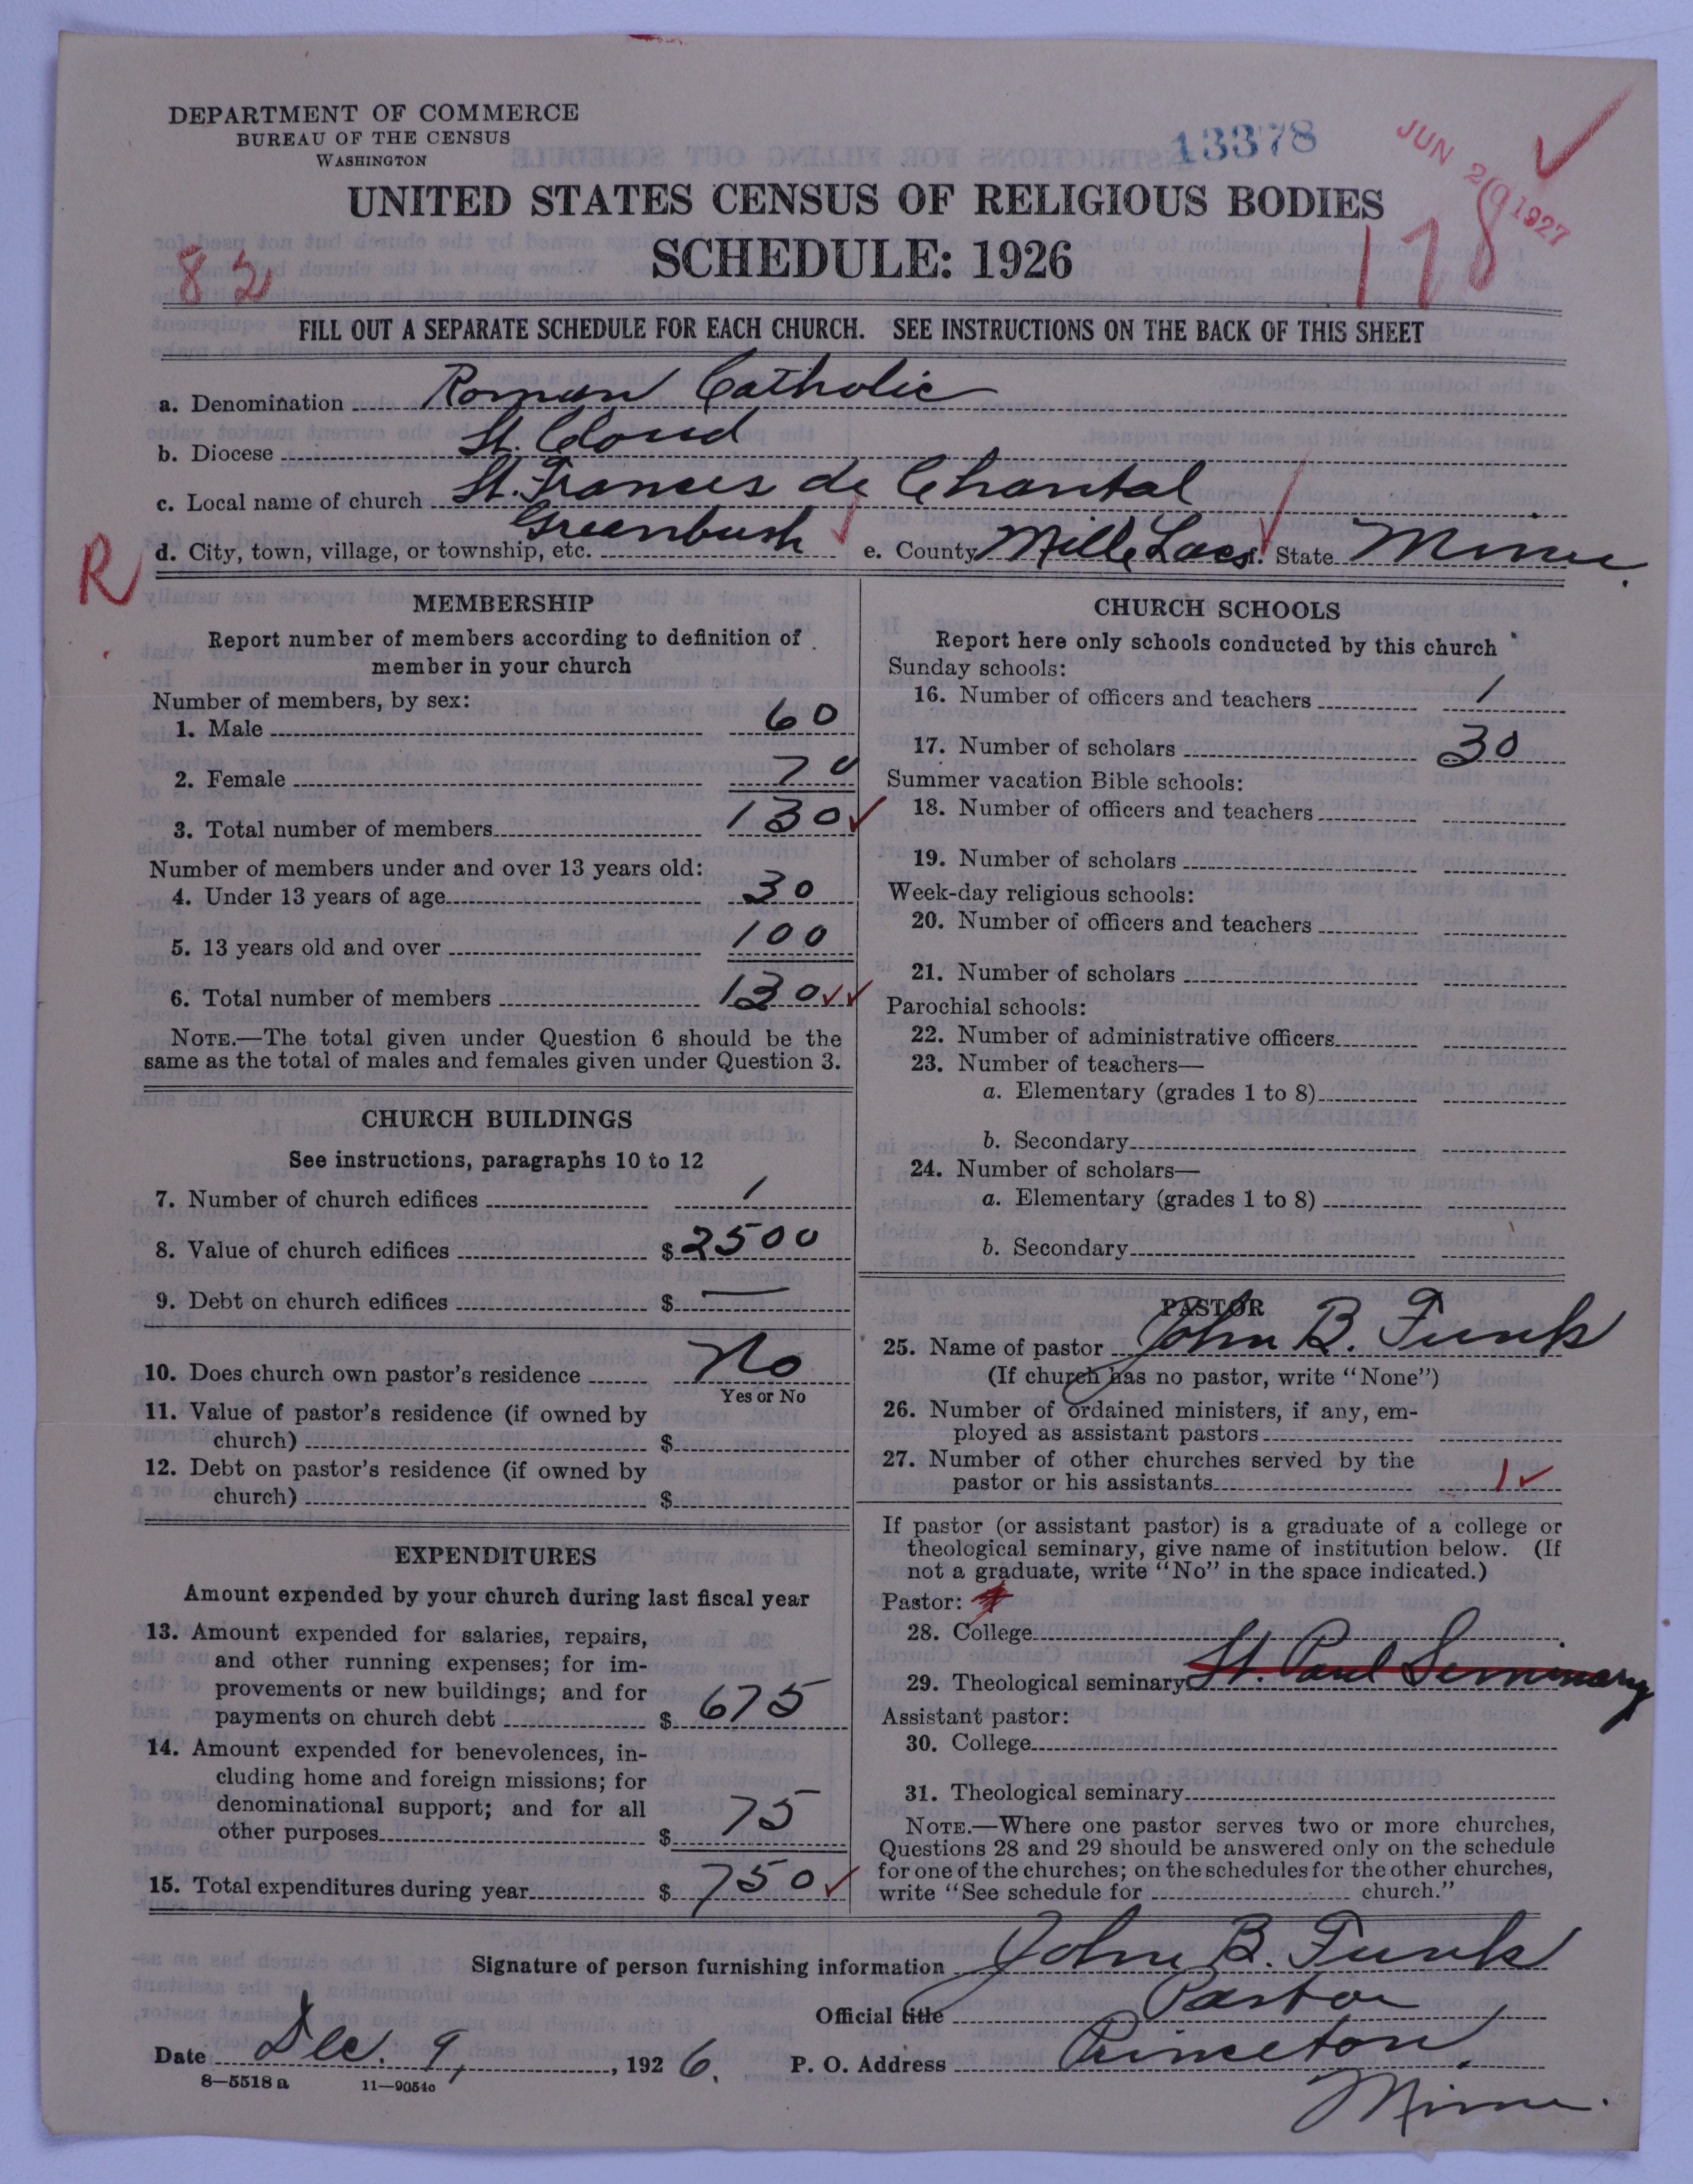 DEPARTMENT OF COMMERCE
BUREAU OF THE CENSUS
WASHINGTON
13378
JUN 20 1927
UNITED STATES CENSUS OF RELIGIOUS BODIES
SCHEDULE: 1926
82
178
FILL OUT A SEPARATE SCHEDULE FOR EACH CHURCH. SEE INSTRUCTIONS ON THE BACK OF THIS SHEET
a. Denomination Roman Catholic
b. Diocese St. Cloud
c. Local name of church St. Frances de Chantal
R
d. City, town, village, or township, etc. Greenbush e. County Mille Lacs f. State Minn.
MEMBERSHIP
Report number of members according to definition of
member in your church
Number of members, by sex:
1. Male 60
2. Female 70
3. Total number of members 130
Number of members under and over 13 years old:
4. Under 13 years of age 30
5. 13 years old and over 100
6. Total number of members 130
NOTE.—The total given under Question 6 should be the
same as the total of males and females given under Question 3.
CHURCH BUILDINGS
See instructions, paragraphs 10 to 12
7. Number of church edifices 1
8. Value of church edifices $ 2500
9. Debt on church edifices $ —
10. Does church own pastor's residence No
Yes or No
11. Value of pastor's residence (if owned by
church) $
12. Debt on pastor's residence (if owned by
church) $
EXPENDITURES
Amount expended by your church during last fiscal year
13. Amount expended for salaries, repairs,
and other running expenses; for im-
provements or new buildings; and for
payments on church debt $ 675
14. Amount expended for benevolences, in-
cluding home and foreign missions; for
denominational support; and for all
other purposes $ 75
15. Total expenditures during year $ 750
CHURCH SCHOOLS
Report here only schools conducted by this church
Sunday schools:
16. Number of officers and teachers 1
17. Number of scholars 30
Summer vacation Bible schools:
18. Number of officers and teachers
19. Number of scholars
Week-day religious schools:
20. Number of officers and teachers
21. Number of scholars
Parochial schools:
22. Number of administrative officers
23. Number of teachers—
a. Elementary (grades 1 to 8)
b. Secondary
24. Number of scholars—
a. Elementary (grades 1 to 8)
b. Secondary
PASTOR
25. Name of pastor John B. Funk
(If church has no pastor, write "None")
26. Number of ordained ministers, if any, em-
ployed as assistant pastors
27. Number of other churches served by the
pastor or his assistants 1
If pastor (or assistant pastor) is a graduate of a college or
theological seminary, give name of institution below. (If
not a graduate, write "No" in the space indicated.)
Pastor:
28. College
29. Theological seminary St. Paul Seminary
Assistant pastor:
30. College
31. Theological seminary
NOTE.—Where one pastor serves two or more churches,
Questions 28 and 29 should be answered only on the schedule
for one of the churches; on the schedules for the other churches,
write "See schedule for church."
Signature of person furnishing information John B. Funk
Official title Pastor
Date Dec. 9, 1926. P. O. Address Princeton,
Minn.
8—5518 a 11—9054c